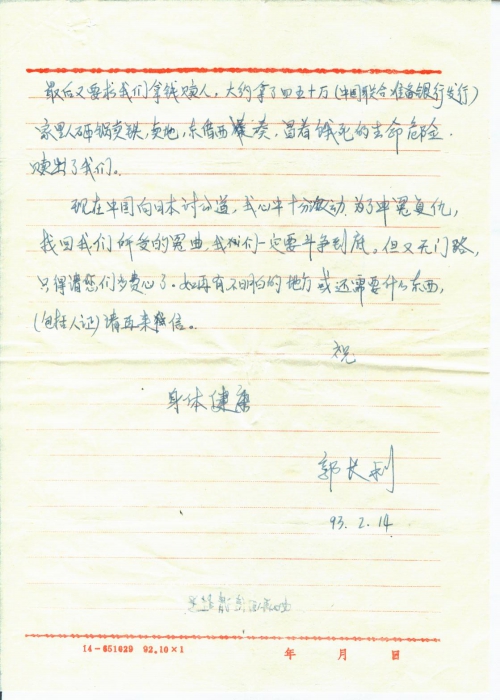 最后又要求我们拿钱赎人，大约拿了四五十万(中国联合准备银行发行)
家里人砸锅卖铁，卖地，东借西凑，冒着饿死的生命危险．
赎出了我们。
现在中国向日本讨公道，我心中十分激动．为了申冤复仇，
找回我们所受的冤曲，我们一定要斗争到底。但又无门路，
只得请您们多费心了。如再有不明白的地方或还需要什么东西，
(包括人证)请再来信。
祝
身体健康
郭长利
93. 2. 14
14-651029 92.10×1 年 月 日